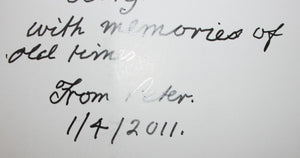 with memories of
old times
From Peter.
1/4/2011.